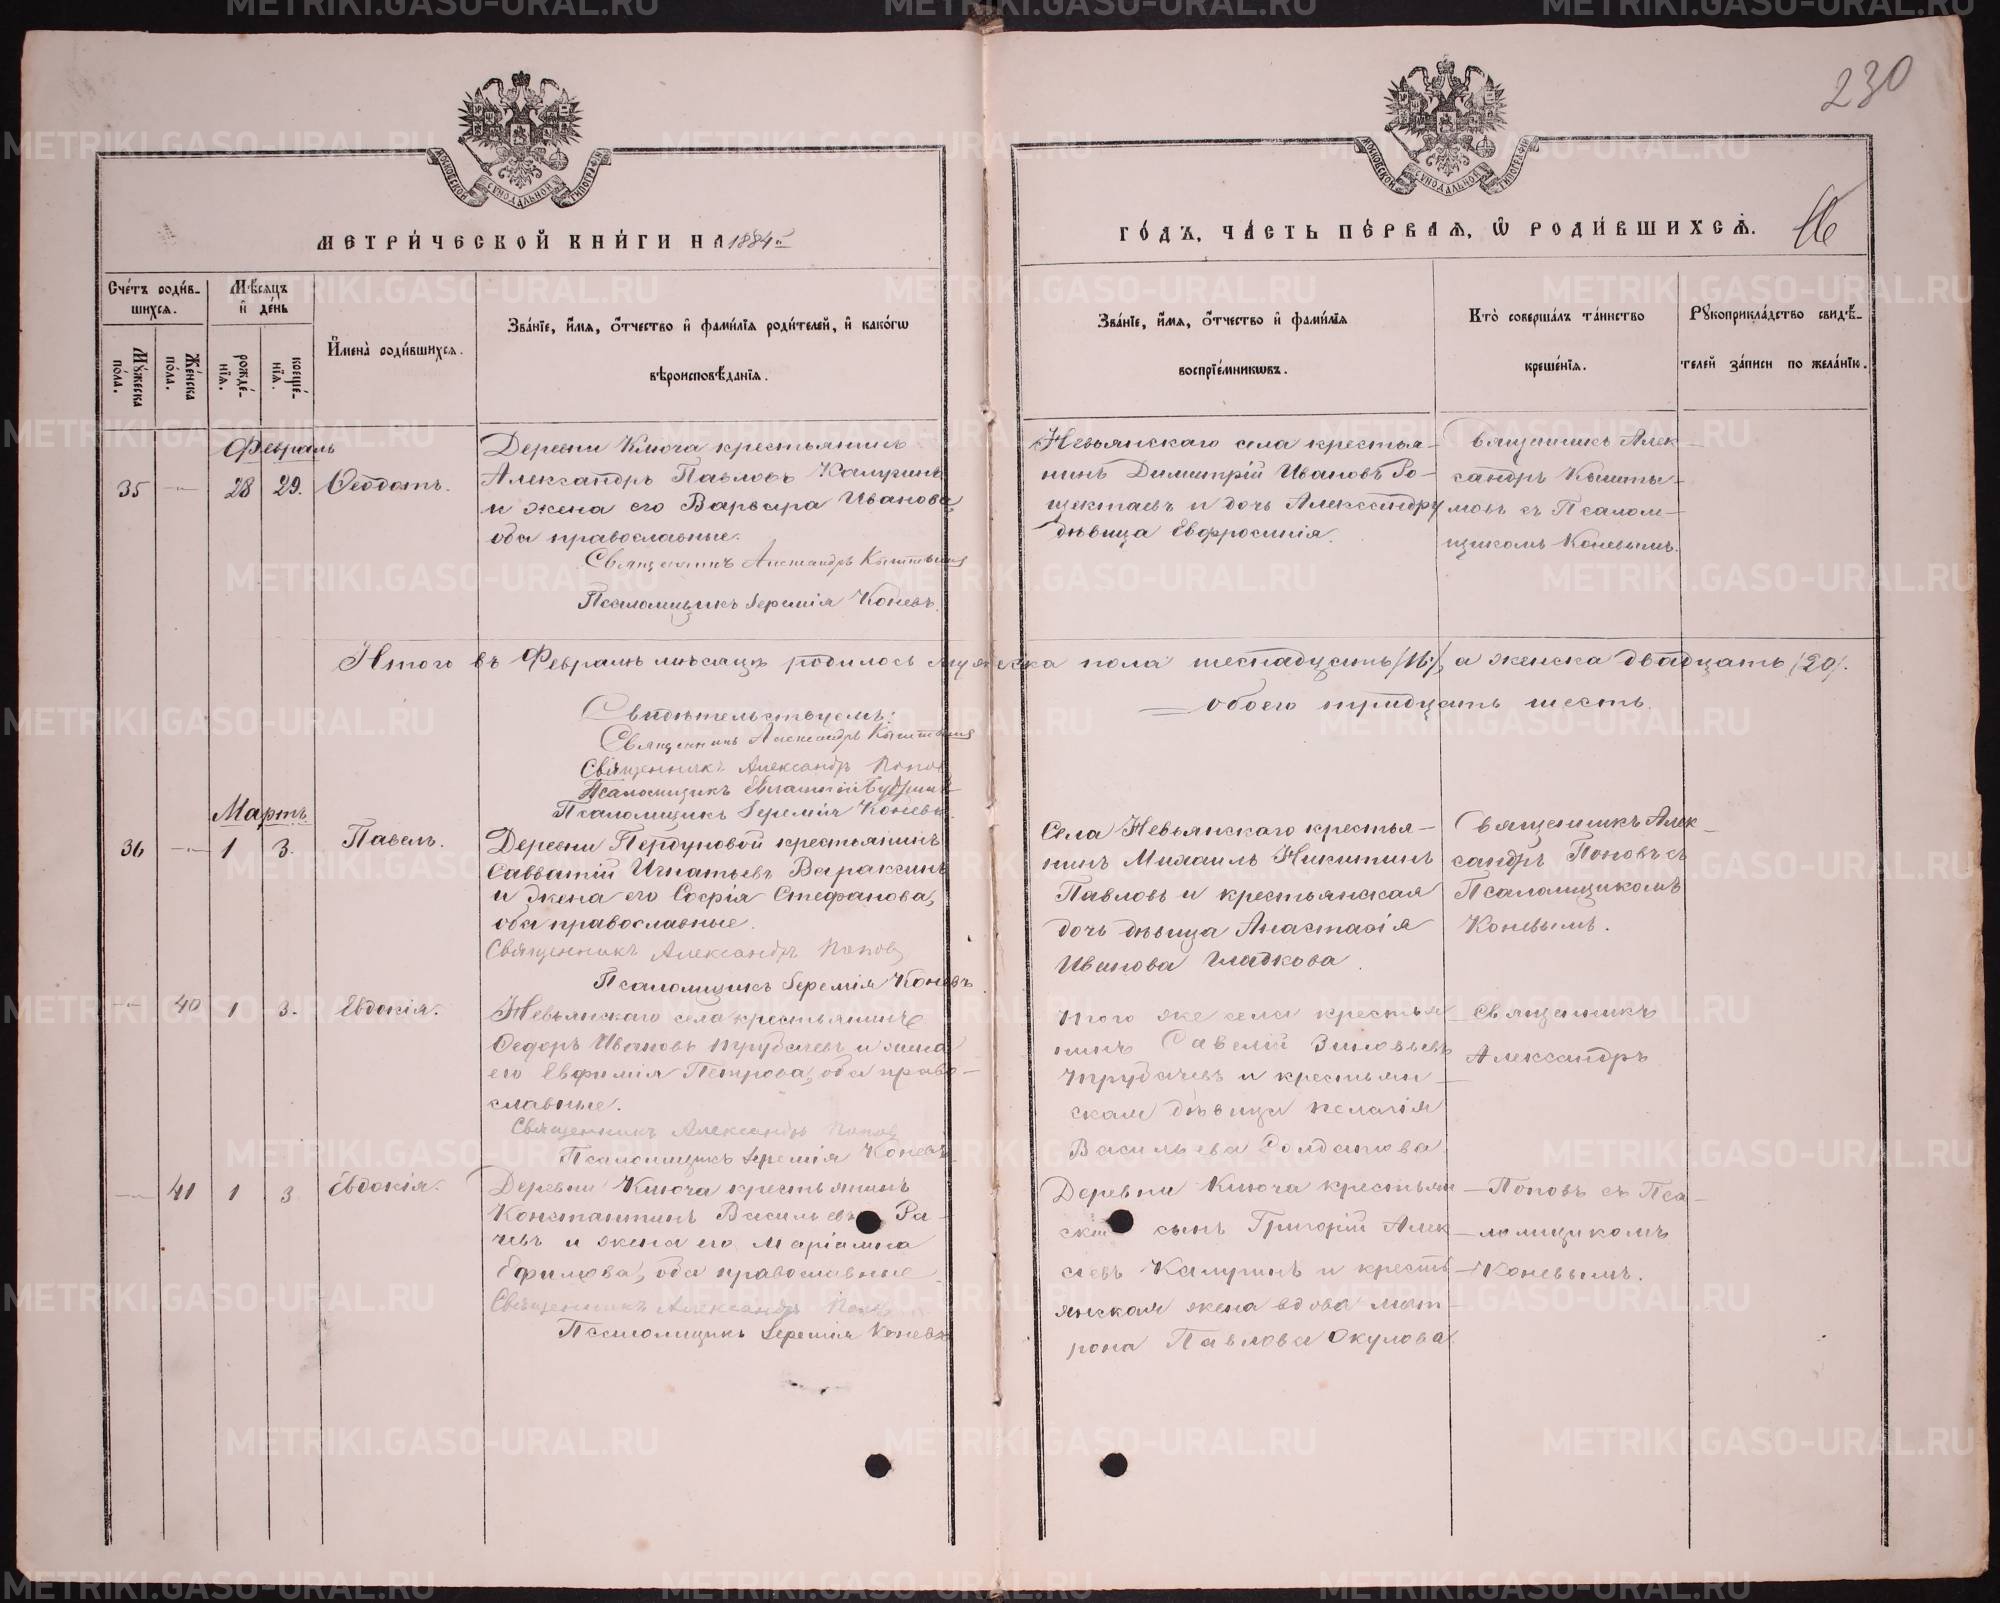 230
МОСКОВСКОЙ СѴНОДАЛЬНОЙ ТИПОГРАФІИ
МОСКОВСКОЙ СѴНОДАЛЬНОЙ ТИПОГРАФІИ
МЕТРИ́ЧЕСКОЙ КНИ́ГИ НА 1884й
ГО́ДЪ, ЧА́СТЬ ПЕ́РВАЯ, Ѿ РОДИ́ВШИХСЯ.
16
Сче́тъ роди́в-
шихся.
Му́жеска по́ла.
Же́нска по́ла.
Мѣ́сяцъ
и де́нь
рожде́-
нія.
креще́-
нія.
Имена̀ роди́вшихся.
Зва́ніе, и́мя, о́тчество и фами́лія роди́телей, и како́гѡ
вѣроисповѣ́данія.
Зва́ніе, и́мя, о́тчество и фами́лія
воспріе́мниковъ.
Кто̀ соверша́лъ та́инство
креще́нія.
Рꙋкоприкла́дство свидѣ́-
телей за́писи по жела́нію.
Февраль
35 — 28 29. Ѳеодотъ.
Деревни Ключа крестьянинъ
Александръ Павловъ Калугинъ
и жена его Варвара Иванова,
оба православные.
Священникъ Александръ Кыштымов
Псаломщикъ Іеремія Коневъ.
Невьянскаго села крестья-
нинъ Димитрій Ивановъ Ро-
щектаевъ и дочь Александру
дѣвица Евфросинія.
Священникъ Алек-
сандръ Кышты-
мовъ съ Псалом-
щикомъ Коневымъ.
Итого въ Февралѣ мѣсяцѣ родилось мужеска пола шестнадцать /16/, а женска двадцать /20/.
— обоего тридцать шесть.
Свидѣтельствуемъ:
Священникъ Александръ Кыштымов
Священникъ Александръ Попов
Псаломщикъ
Псаломщикъ Іеремія Коневъ.
Мартъ
36 — 1 3. Павелъ.
Деревни Пердуновой крестьянинъ
Савватій Игнатьевъ Вараксинъ
и жена его Софія Стефанова,
оба православные.
Священникъ Александръ Попов
Псаломщикъ Іеремія Коневъ
Села Невьянскаго крестья-
нинъ Михаилъ Никитинъ
Павловъ и крестьянская
дочь дѣвица Анастасія
Иванова Гладкова.
Священникъ Алек-
сандръ Поповъ съ
Псаломщикомъ
Коневымъ.
— 40 1 3. Евдокія.
Невьянскаго села крестьянинъ
Ѳедоръ Ивановъ Трубачевъ и жена
его Евфимія Петрова, оба право-
славные.
Священникъ Александръ Попов
Псаломщикъ Іеремія Коневъ
Того же села крестья-
нинъ Савелій Зиновьевъ
Трубачевъ и крестьян-
ская дѣвица Пелагія
Васильева Солдатова.
Священникъ
Александръ
— 41 1 3 Евдокія.
Деревни Ключа крестьянинъ
Константинъ Васильевъ Ра-
чевъ и жена его Маріамна
Ефимова, оба православные
Священникъ Александръ Попов
Псаломщикъ Іеремія Коневъ
Деревни Ключа крестьян-
скій сынъ Григорій Алек-
сѣевъ Калугинъ и кресть-
янская жена вдова Мат-
рона Павлова Окулова.
Поповъ съ Пса-
ломщикомъ
Коневымъ.